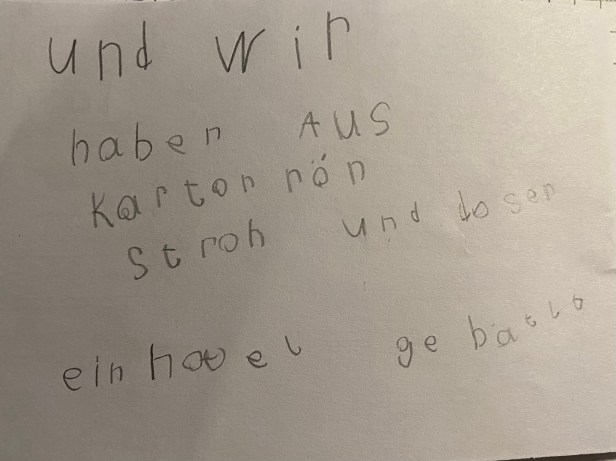 und wir
haben AUS
Karton rön
Stroh und dosen
ein hotel ge bastlt